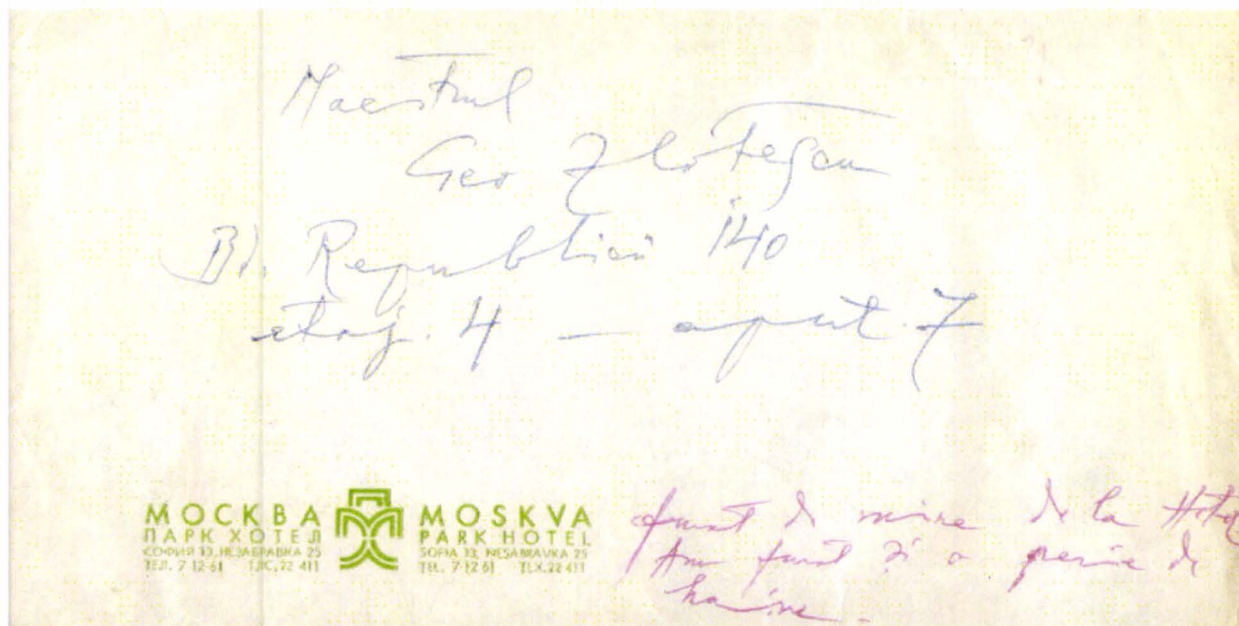 Maestrul
Geo Zlotescu
Bd. Republicii 140
etaj. 4 — apart. 7
МОСКВА
ПАРК ХОТЕЛ
СОФИЯ 13, НЕЗАБРАВКА 25
ТЕЛ. 7 12 61 ТЛС. 22 411
MOSKVA
PARK HOTEL
SOFIA 13, NESABRAVKA 25
TEL. 7 12 61 TLX. 22 411
furat de mine de la Hotel
Am furat și o perie de
haine.